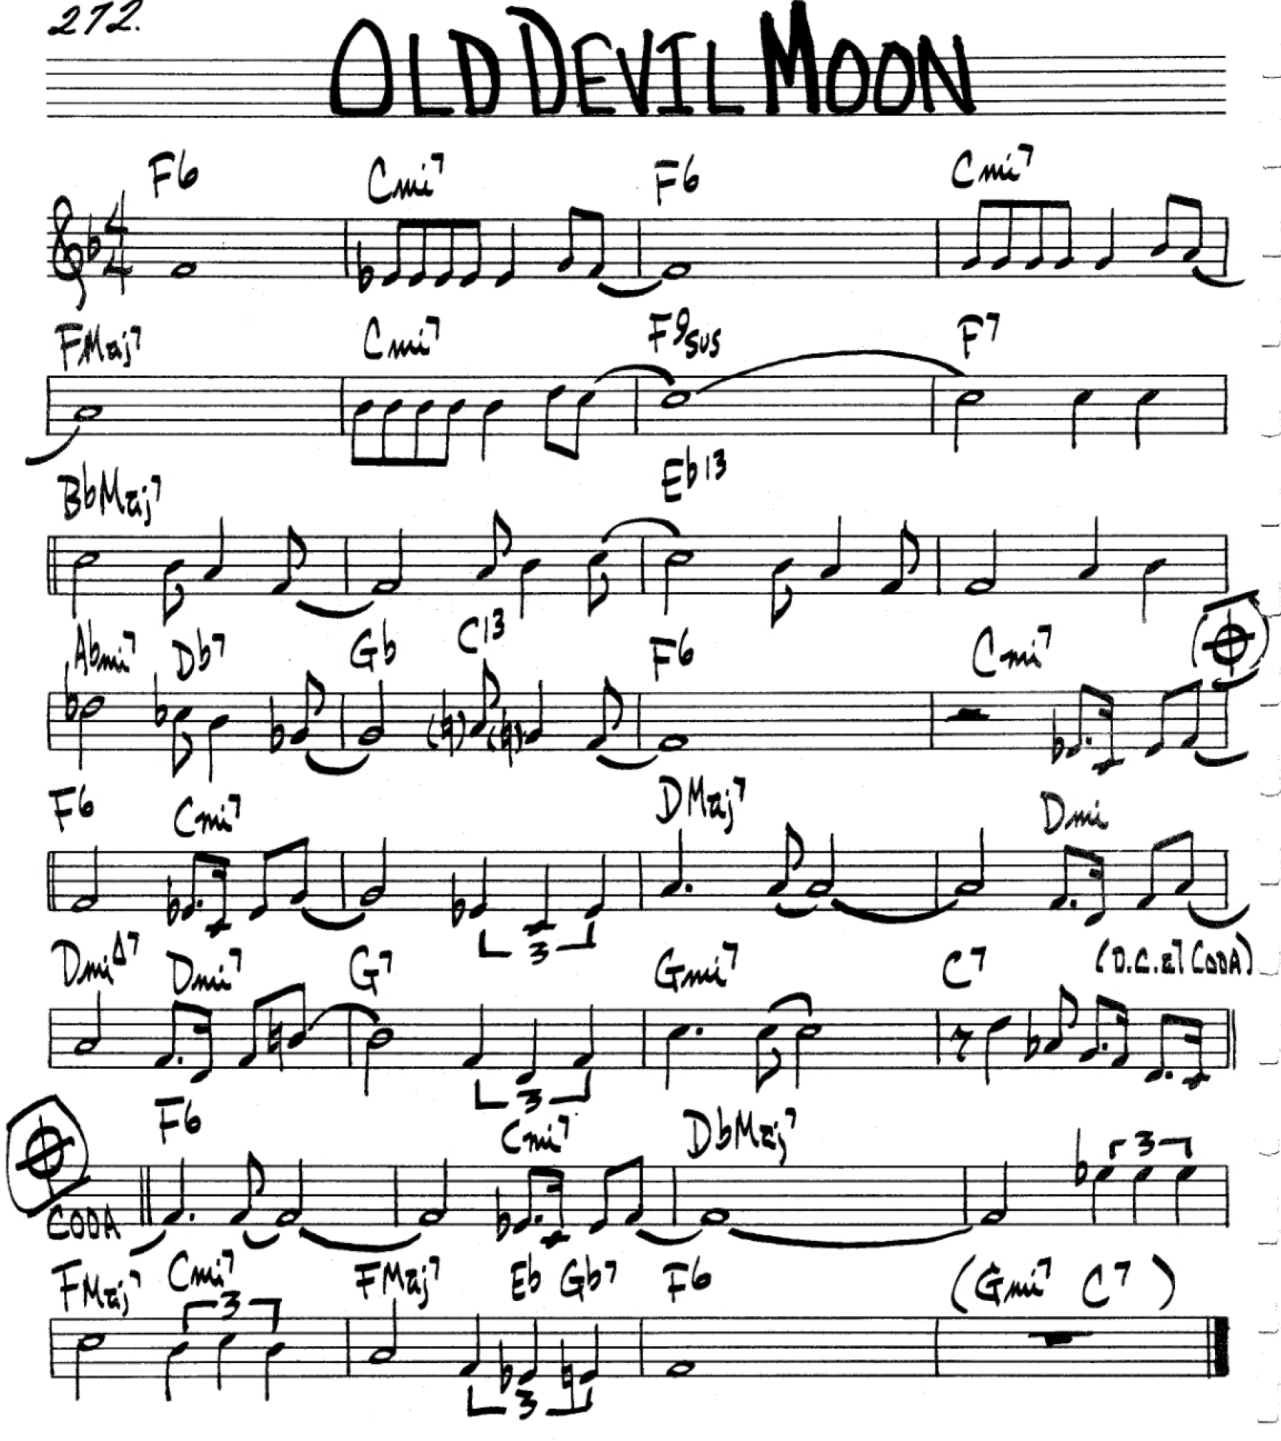 272.
OLD DEVIL MOON
F6 Cmi7 F6 Cmi7
4
4
FMaj7 Cmi7 F9sus F7
BbMaj7 Eb13
Abmi7 Db7 Gb C13 F6 Cmi7
F6 Cmi7 DMaj7 Dmi
3
DmiΔ7 Dmi7 G7 Gmi7 C7 (D.C. al CODA)
3
F6 Cmi7 DbMaj7 3
CODA
FMaj7 Cmi7 FMaj7 Eb Gb7 F6 (Gmi7 C7)
3
3